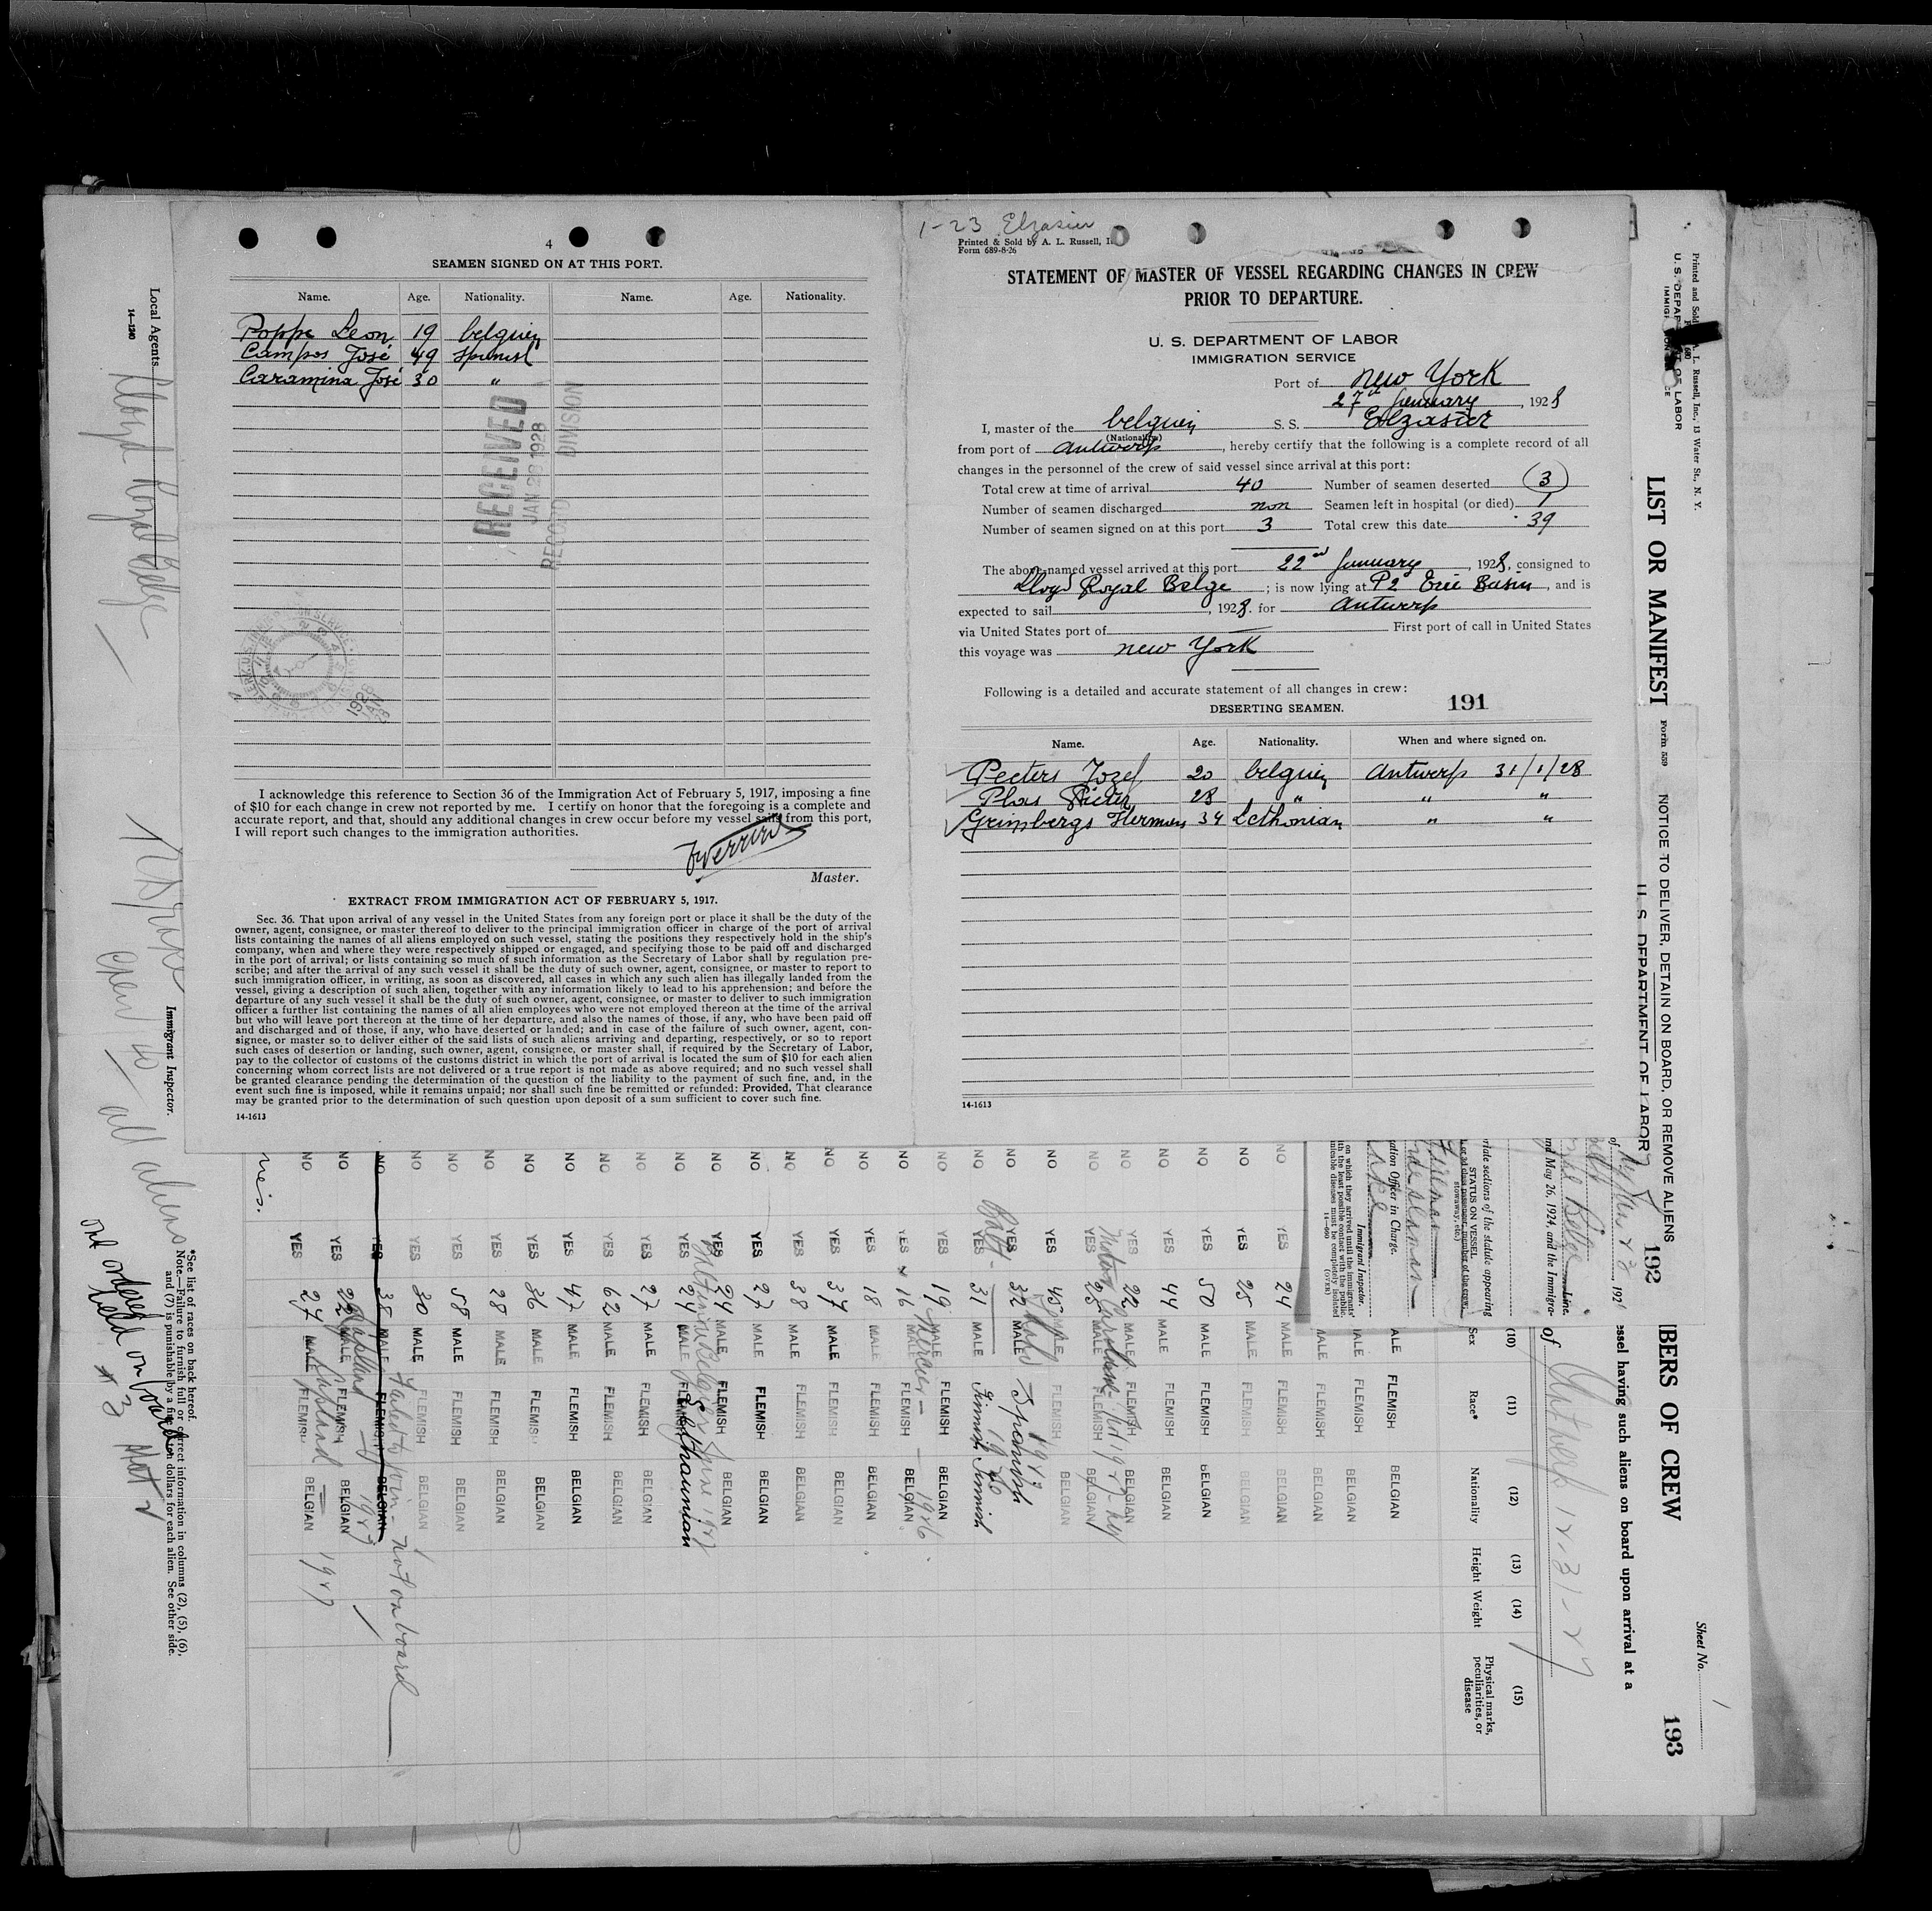 4
SEAMEN SIGNED ON AT THIS PORT.
Name. Age. Nationality. Name. Age. Nationality.
Poppe Leon 19 belguien
Campos José 49 Spanish
Caramina José 30 "
RECEIVED
JAN 28 1928
RECORD DIVISION
I acknowledge this reference to Section 36 of the Immigration Act of February 5, 1917, imposing a fine
of $10 for each change in crew not reported by me. I certify on honor that the foregoing is a complete and
accurate report, and that, should any additional changes in crew occur before my vessel sails from this port,
I will report such changes to the immigration authorities.
Master.
EXTRACT FROM IMMIGRATION ACT OF FEBRUARY 5, 1917.
Sec. 36. That upon arrival of any vessel in the United States from any foreign port or place it shall be the duty of the
owner, agent, consignee, or master thereof to deliver to the principal immigration officer in charge of the port of arrival
lists containing the names of all aliens employed on such vessel, stating the positions they respectively hold in the ship's
company, when and where they were respectively shipped or engaged, and specifying those to be paid off and discharged
in the port of arrival; or lists containing so much of such information as the Secretary of Labor shall by regulation pre-
scribe; and after the arrival of any such vessel it shall be the duty of such owner, agent, consignee, or master to report to
such immigration officer, in writing, as soon as discovered, all cases in which any such alien has illegally landed from the
vessel, giving a description of such alien, together with any information likely to lead to his apprehension; and before the
departure of any such vessel it shall be the duty of such owner, agent, consignee, or master to deliver to such immigration
officer a further list containing the names of all alien employees who were not employed thereon at the time of the arrival
but who will leave port thereon at the time of her departure, and also the names of those, if any, who have been paid off
and discharged and of those, if any, who have deserted or landed; and in case of the failure of such owner, agent, con-
signee, or master so to deliver either of the said lists of such aliens arriving and departing, respectively, or so to report
such cases of desertion or landing, such owner, agent, consignee, or master shall, if required by the Secretary of Labor,
pay to the collector of customs of the customs district in which the port of arrival is located the sum of $10 for each alien
concerning whom correct lists are not delivered or a true report is not made as above required; and no such vessel shall
be granted clearance pending the determination of the question of the liability to the payment of such fine, and, in the
event such fine is imposed, while it remains unpaid; nor shall such fine be remitted or refunded: Provided, That clearance
may be granted prior to the determination of such question upon deposit of a sum sufficient to cover such fine.
14-1613
1-23 Elzasier
Printed & Sold by A. L. Russell, I
Form 689-8-26
STATEMENT OF MASTER OF VESSEL REGARDING CHANGES IN CREW
PRIOR TO DEPARTURE.
U. S. DEPARTMENT OF LABOR
IMMIGRATION SERVICE
Port of New York
27th January, 1928
I, master of the belguien S. S. Elzasier
(Nationality)
from port of Antwerp, hereby certify that the following is a complete record of all
changes in the personnel of the crew of said vessel since arrival at this port:
Total crew at time of arrival 40 Number of seamen deserted 3
Number of seamen discharged non Seamen left in hospital (or died) 1
Number of seamen signed on at this port 3 Total crew this date 39
The above-named vessel arrived at this port 22nd January, 1928, consigned to
Lloyd Royal Belge; is now lying at P2 Erie Basin, and is
expected to sail , 1928. for Antwerp
via United States port of First port of call in United States
this voyage was New York
Following is a detailed and accurate statement of all changes in crew:
DESERTING SEAMEN. 191
Name. Age. Nationality. When and where signed on.
Peeters Jozef 20 belguien Antwerp 31/1/28
Plas Pieter 28 " " "
Grimbergs Herman 34 Lethonian " "
14-1613
Local Agents Lloyd Royal Belge
14-1240
Immigrant Inspector.
Crew 40 all aliens
*See list of races on back hereof.
Note.—Failure to furnish full or correct information in columns (2), (5), (6),
and (7) is punishable by a fine of ten dollars for each alien. See other side.
One ordered
held on board
# 3
Printed and Sold A. L. Russell, Inc., 13 Water St., N. Y.
LIST OR MANIFEST
BERS OF CREW
Form 559 NOTICE TO DELIVER, DETAIN ON BOARD, OR REMOVE ALIENS
U. S. DEPARTMENT OF LABOR
192
193
Sheet No. 1
essel having such aliens on board upon arrival at a
of Antwerp 12-31-27
nd May 26, 1924, and the Immigra-
riate sections of the statute appearing
STATUS ON VESSEL
ation Officer in Charge.
Immigrant Inspector.
(OVER)
(10) (11) (12) (13) (14) (15)
Sex Race* Nationality Height Weight Physical marks, peculiarities, or disease
ALE FLEMISH BELGIAN
ALE FLEMISH BELGIAN
ALE FLEMISH BELGIAN
NO YES 24 MALE FLEMISH BELGIAN
NO YES 25 MALE FLEMISH BELGIAN
NO YES 50 MALE FLEMISH BELGIAN
NO YES 44 MALE FLEMISH BELGIAN
NO YES 22 MALE FLEMISH BELGIAN
NO YES 25 MALE FLEMISH BELGIAN
NO YES 45 MALE FLEMISH BELGIAN
NO YES 32 MALE Spanish
NO YES 31 MALE Finnish Finnish
NO YES 19 MALE FLEMISH BELGIAN
NO YES 16 MALE FLEMISH BELGIAN
NO YES 18 MALE FLEMISH BELGIAN
NO YES 37 MALE FLEMISH BELGIAN
NO YES 38 MALE FLEMISH BELGIAN
NO YES 27 MALE FLEMISH BELGIAN
NO YES 24 MALE FLEMISH BELGIAN
NO YES 24 MALE FLEMISH
NO YES 27 MALE FLEMISH BELGIAN
NO YES 62 MALE FLEMISH BELGIAN
NO YES 47 MALE FLEMISH BELGIAN
NO YES 36 MALE FLEMISH BELGIAN
NO YES 28 MALE FLEMISH BELGIAN
NO YES 58 MALE FLEMISH BELGIAN
NO YES 30 MALE FLEMISH BELGIAN
Failed to join - not on board
NO YES 38 MALE FLEMISH BELGIAN
NO YES MALE FLEMISH BELGIAN
NO YES 27 MALE FLEMISH BELGIAN